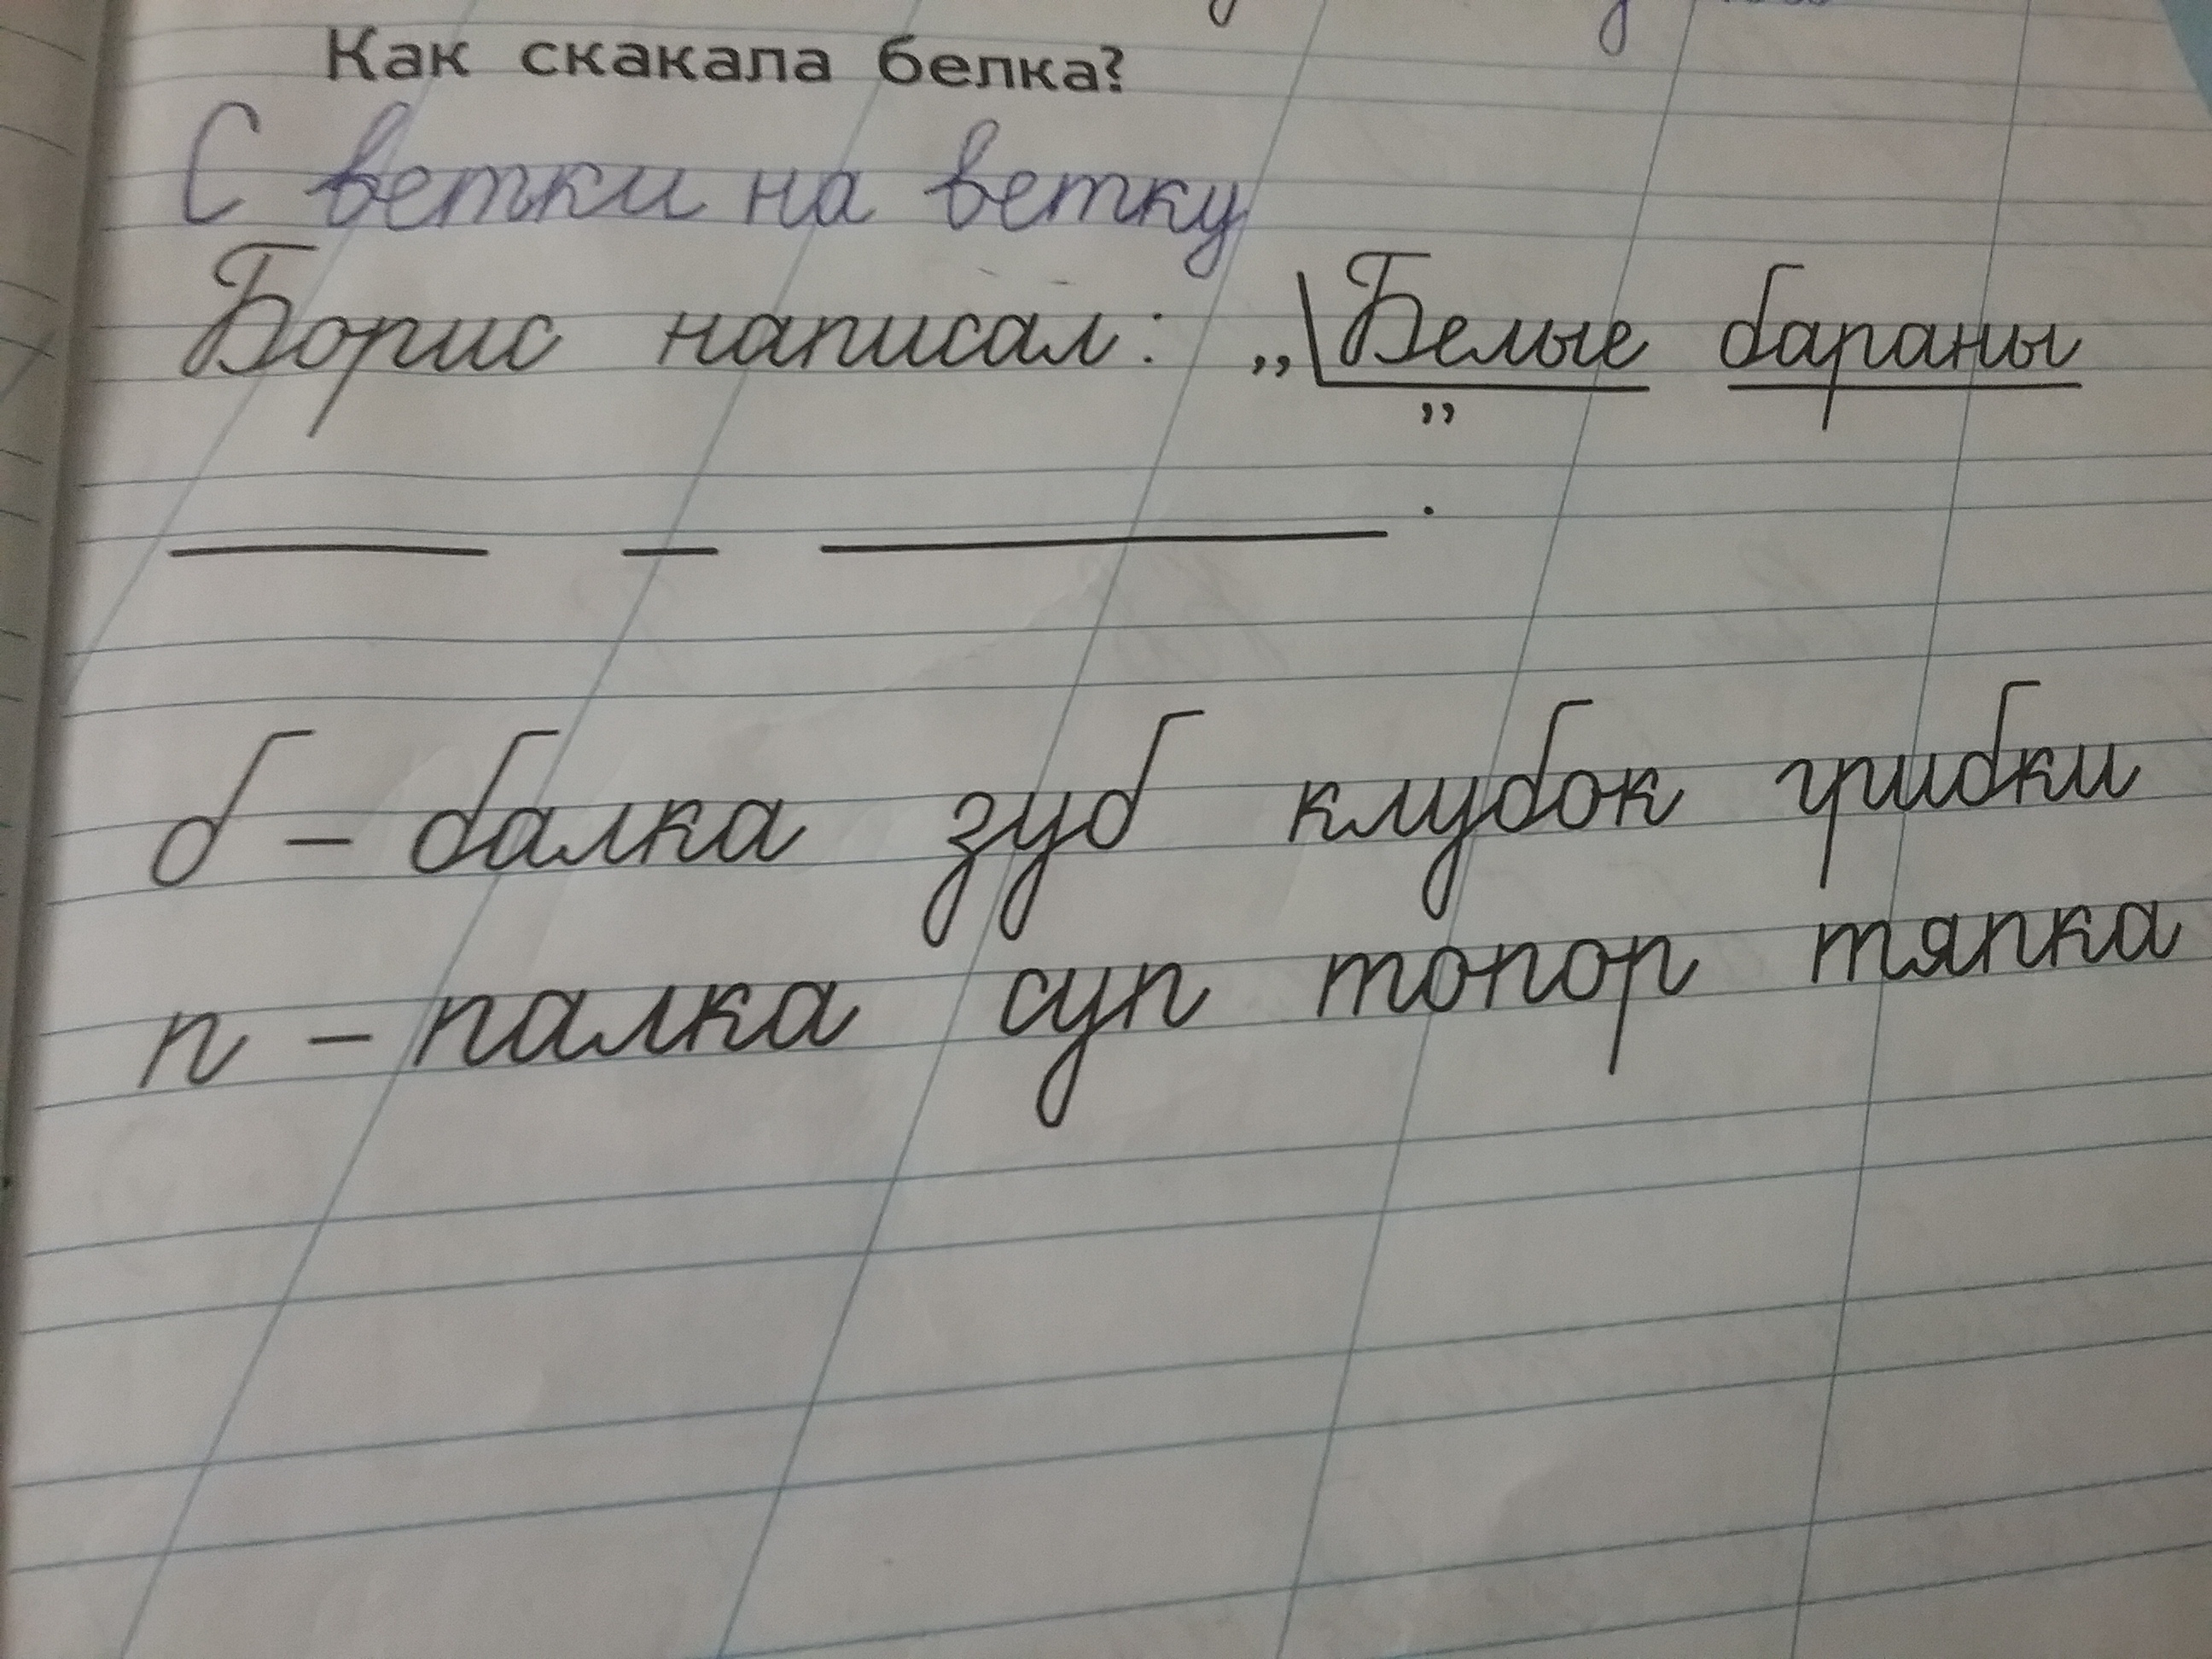 Как скакала белка?
С ветки на ветку
Борис написал: „Белые бараны
”
.
б – балка зуб клубок грибки
п – палка суп топор тяпка